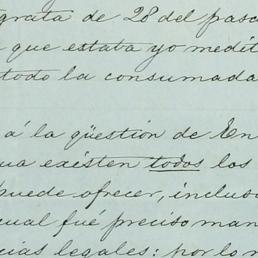 grata de 28 del pasa
que estaba yo medit
todo la consumada
á la qüestion de En
ua existen todos los
puede ofrecer, inclus
cual fué preciso man
cias legales: por lo